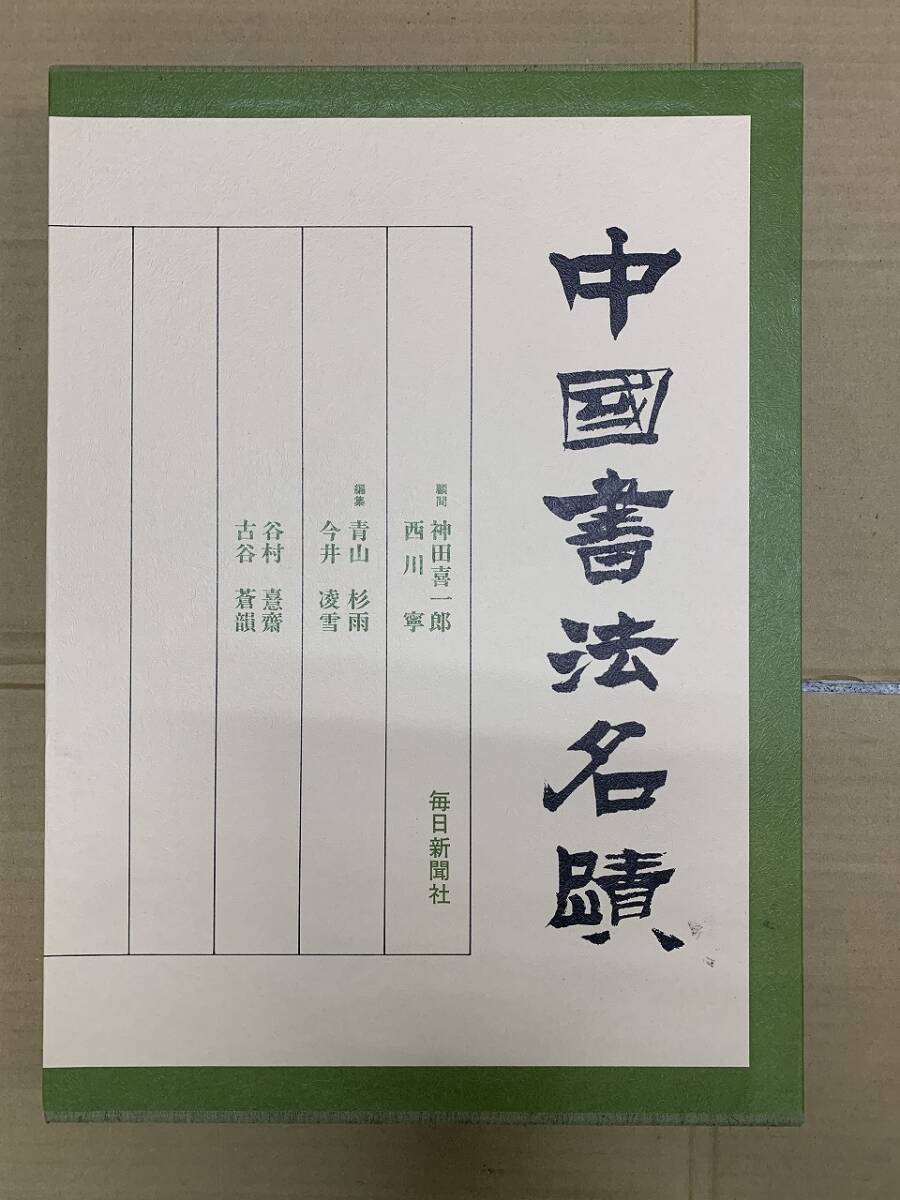 中國書法名蹟
顧問 神田喜一郎
西川 寧
編集 青山 杉雨
今井 凌雪
谷村 憙齋
古谷 蒼韻
毎日新聞社